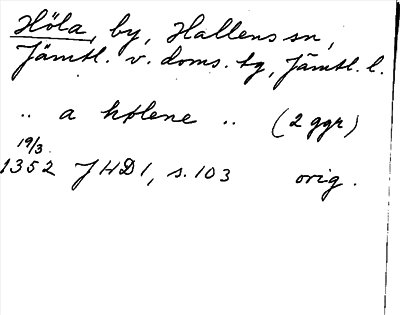 Höla, by, Hallens sn,
Jämtl. v. doms. tg, Jämtl. l.
.. a hølene .. (2 ggr)
19/3
1352 JHD1, s. 103 orig.